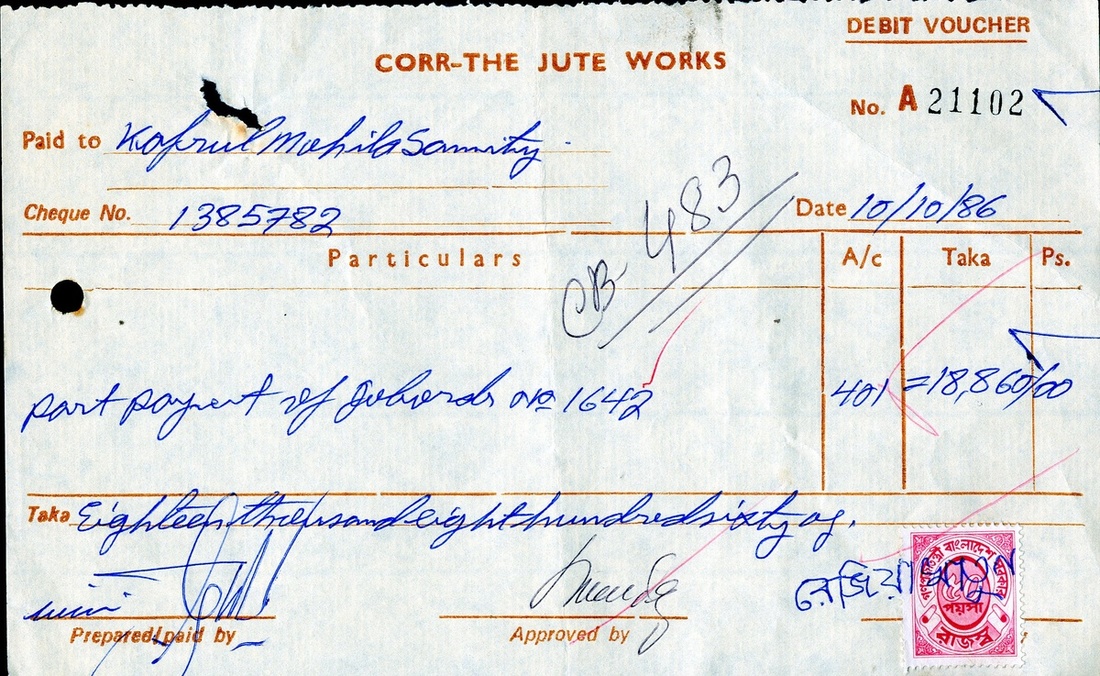 DEBIT VOUCHER
CORR-THE JUTE WORKS
No. A 21102
Paid to Kafrul Mohila Samity.
Cheque No. 1385782
Date 10/10/86
CB- 483
Particulars A/c Taka Ps.
part payment of no 1642 401 =18,860/00
Taka Eighteen thousand eight hundred sixty
গণপ্রজাতন্ত্রী বাংলাদেশ সরকার
রেজিয়া
৫০
পয়সা
রাজস্ব
Prepared/paid by Approved by